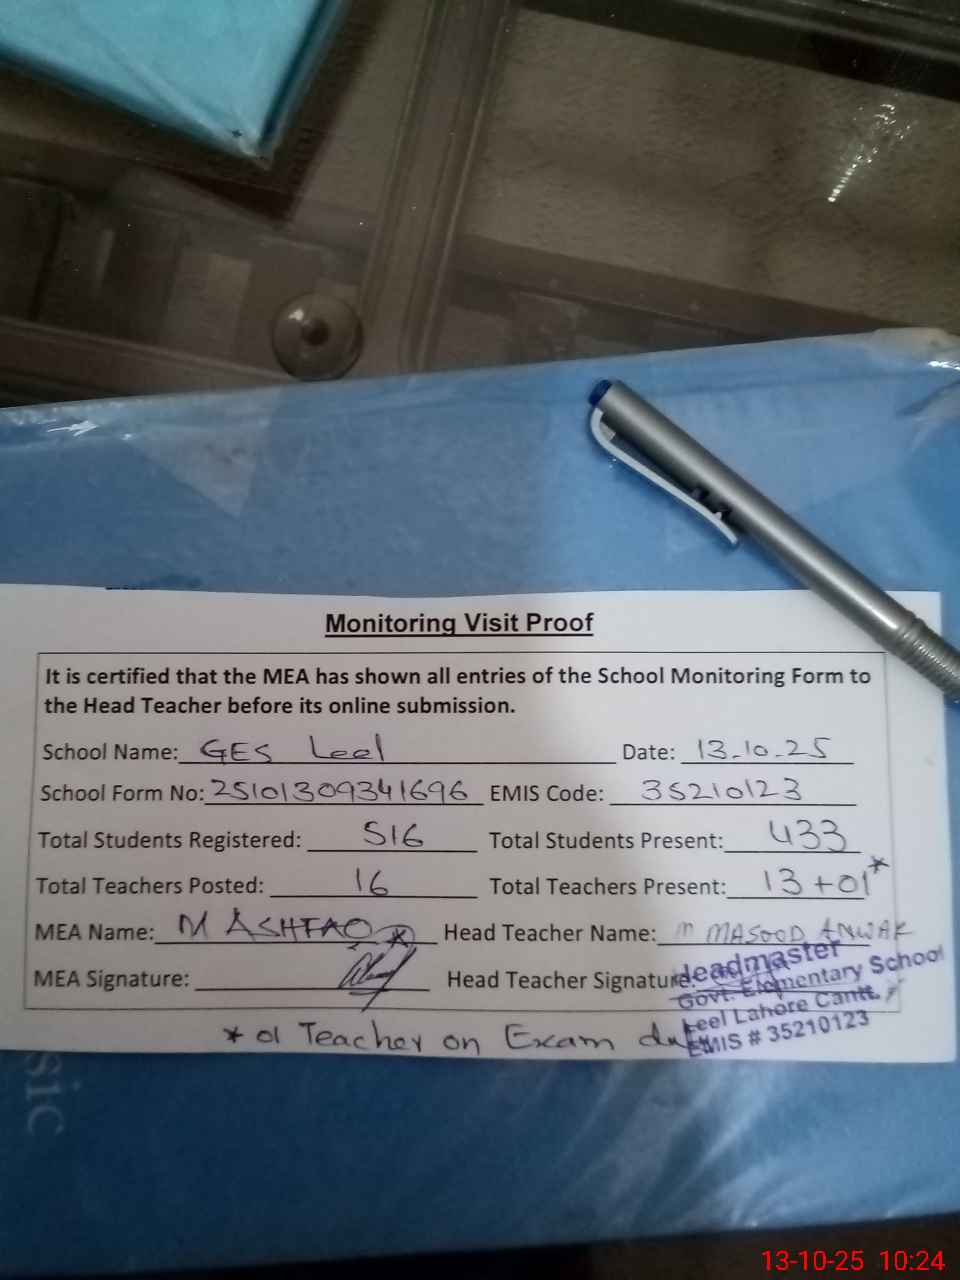 Monitoring Visit Proof
It is certified that the MEA has shown all entries of the School Monitoring Form to
the Head Teacher before its online submission.
School Name: GES Leel Date: 13-10-25
School Form No: 25101309341696 EMIS Code: 35210123
Total Students Registered: 516 Total Students Present: 433
Total Teachers Posted: 16 Total Teachers Present: 13+01*
MEA Name: M ASHFAQ Head Teacher Name: M MASOOD ANWAR
MEA Signature: Head Teacher Signature:
Headmaster
Govt. Elementary School
Leel Lahore Cantt.
EMIS # 35210123
* 01 Teacher on Exam duty
sic
13-10-25 10:24